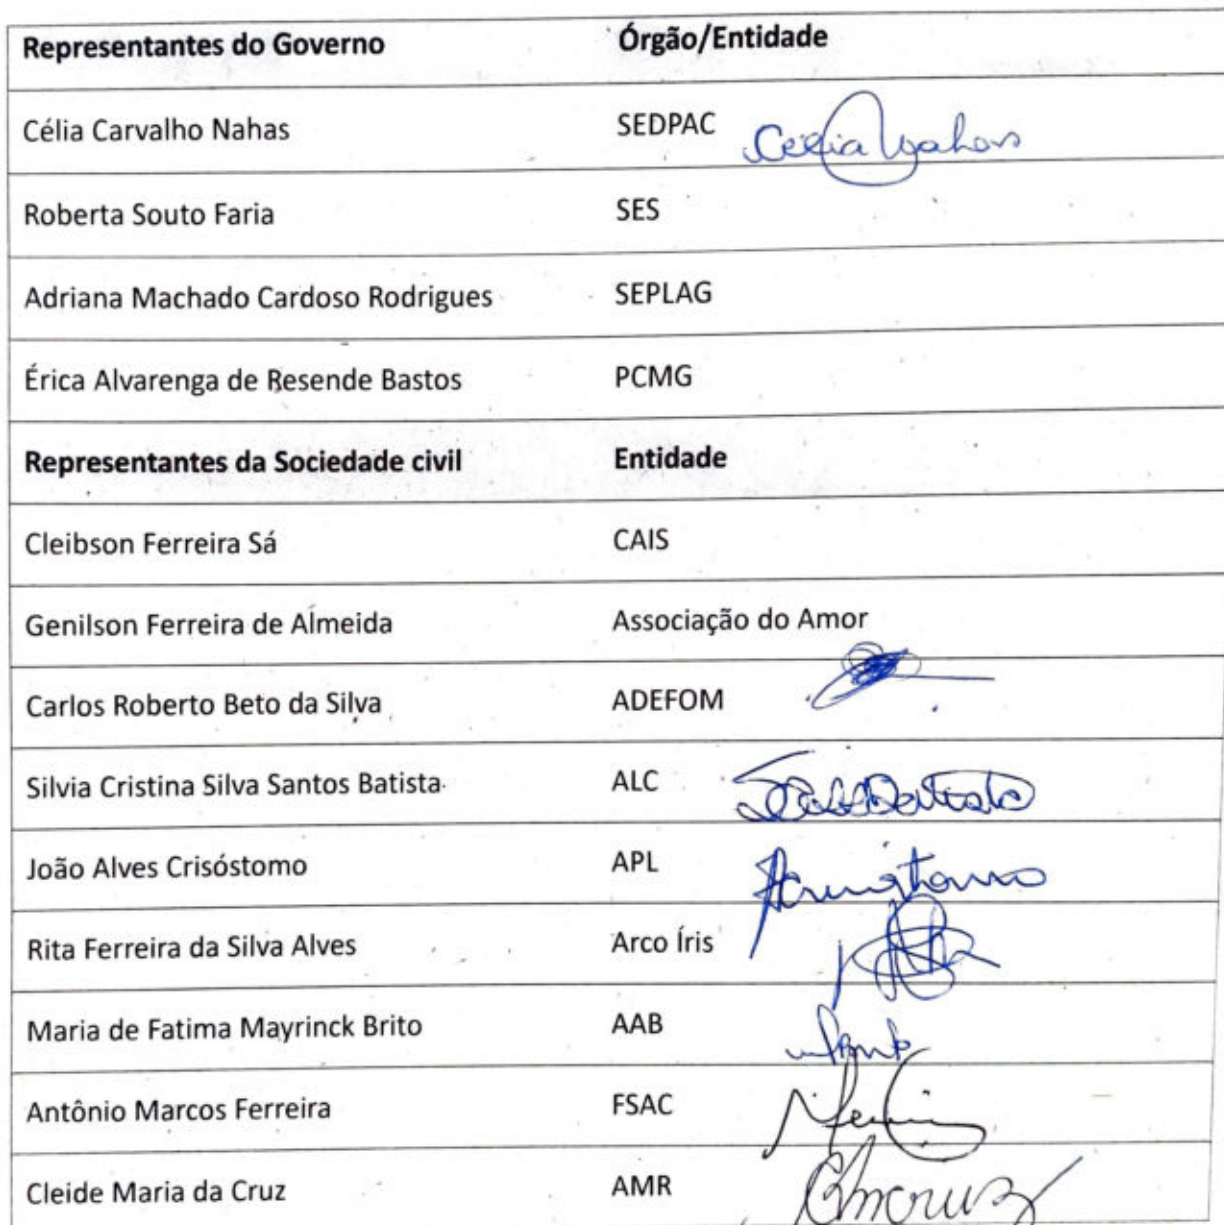 Representantes do Governo Órgão/Entidade
Célia Carvalho Nahas SEDPAC Celia Nahas
Roberta Souto Faria SES
Adriana Machado Cardoso Rodrigues SEPLAG
Érica Alvarenga de Resende Bastos PCMG
Representantes da Sociedade civil Entidade
Cleibson Ferreira Sá CAIS
Genilson Ferreira de Almeida Associação do Amor
Carlos Roberto Beto da Silva ADEFOM
Silvia Cristina Silva Santos Batista ALC
João Alves Crisóstomo APL
Rita Ferreira da Silva Alves Arco Íris
Maria de Fatima Mayrinck Brito AAB
Antônio Marcos Ferreira FSAC
Cleide Maria da Cruz AMR